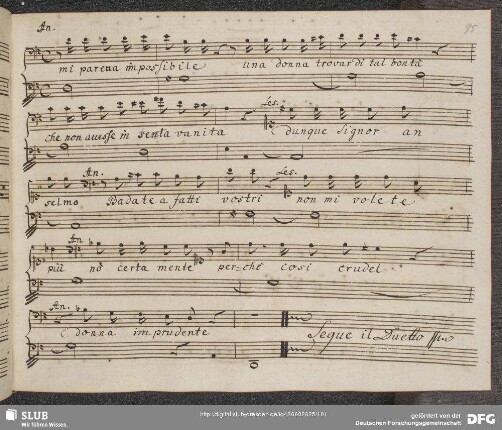 An.
95
mi pareva impossibile una donna trovar di tal bontà
Les.
che non avesse in se sta vanita dunque Signor an
An. Les.
selmo Badate a fatti vostri non mi volete
An
più nò certa mente per=che cosi crudel
An.
è donna imprudente Segue il Duetto
SLUB
Wir führen Wissen.
gefördert von der
Deutschen Forschungsgemeinschaft
DFG